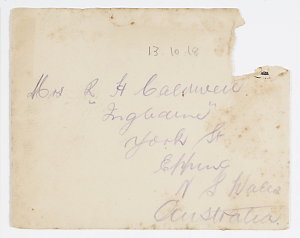 13.10.18
Mrs R H Caldwell
"Ingledine"
York St
Epping
N S Wales
Australia